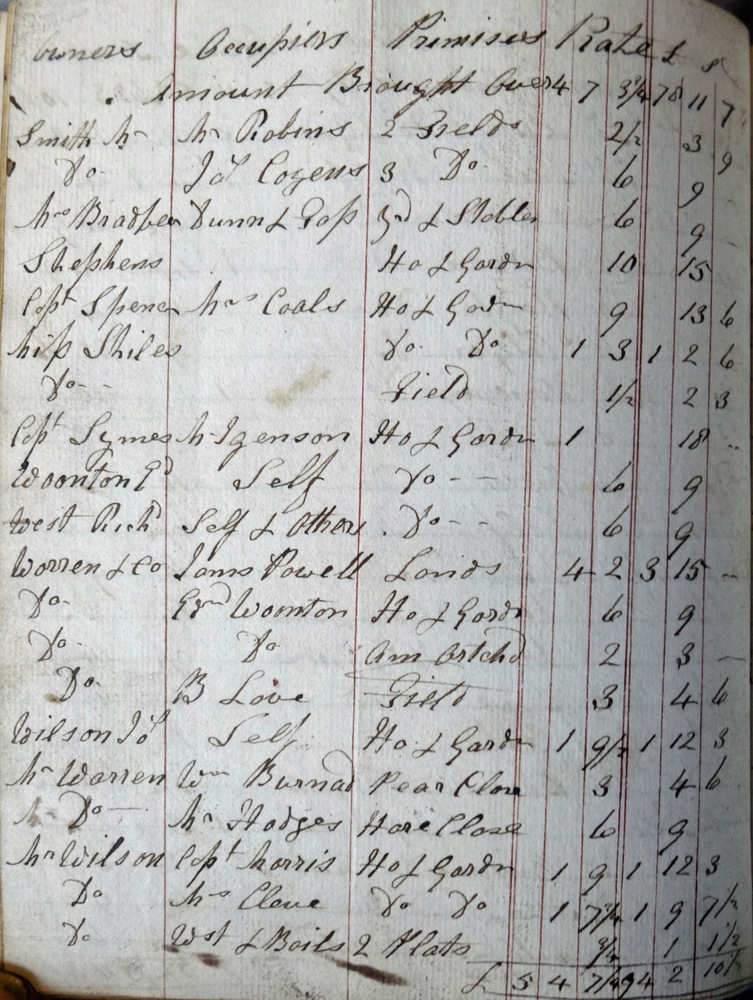 Owners Occupiers Primises Rate £ s
Amount Brought Over 4 7 3¾ 78 11 7
Smith Mr Mr Robins 2 Fields 2½ 3 9
Do Jos Cozens 3 Do 6 9
Mrs Dunn & Yd & Stables 6 9 -
Stephens Ho & Gardn 10 15
Capt Spencer Mrs Coals Ho & Gardn 9 13 6
Miss Stiles Do Do 1 3 1 2 6
Do Field 1/2 2 3
Capt Symes Mr Igenson Ho & Gardn 1 18 -
Woonton Ed Self Do 6 9
West Richd Self & Others Do 6 9
Warren & Co Jams Powell Lands 4 2 3 15 -
Do Ed Woonton Ho & Gardn 6 9
Do Do Orched 2 3 -
Do B Love Field 3 4 6
Wilson Jos Self Ho & Gardn 1 9½ 1 12 3
Mr Warren Wm Burnad Pear Close 3 4 6
Do Mr Hodges Hare Close 6 9
Mr Wilson Capt Morris Ho & Gardn 1 9 1 12 3
Do Mrs Cleve Do Do 1 7¾ 1 9 7½
Do West & Bails 2 Plats ¾ 1 1½
£ 5 4 7¼ 94 2 10½